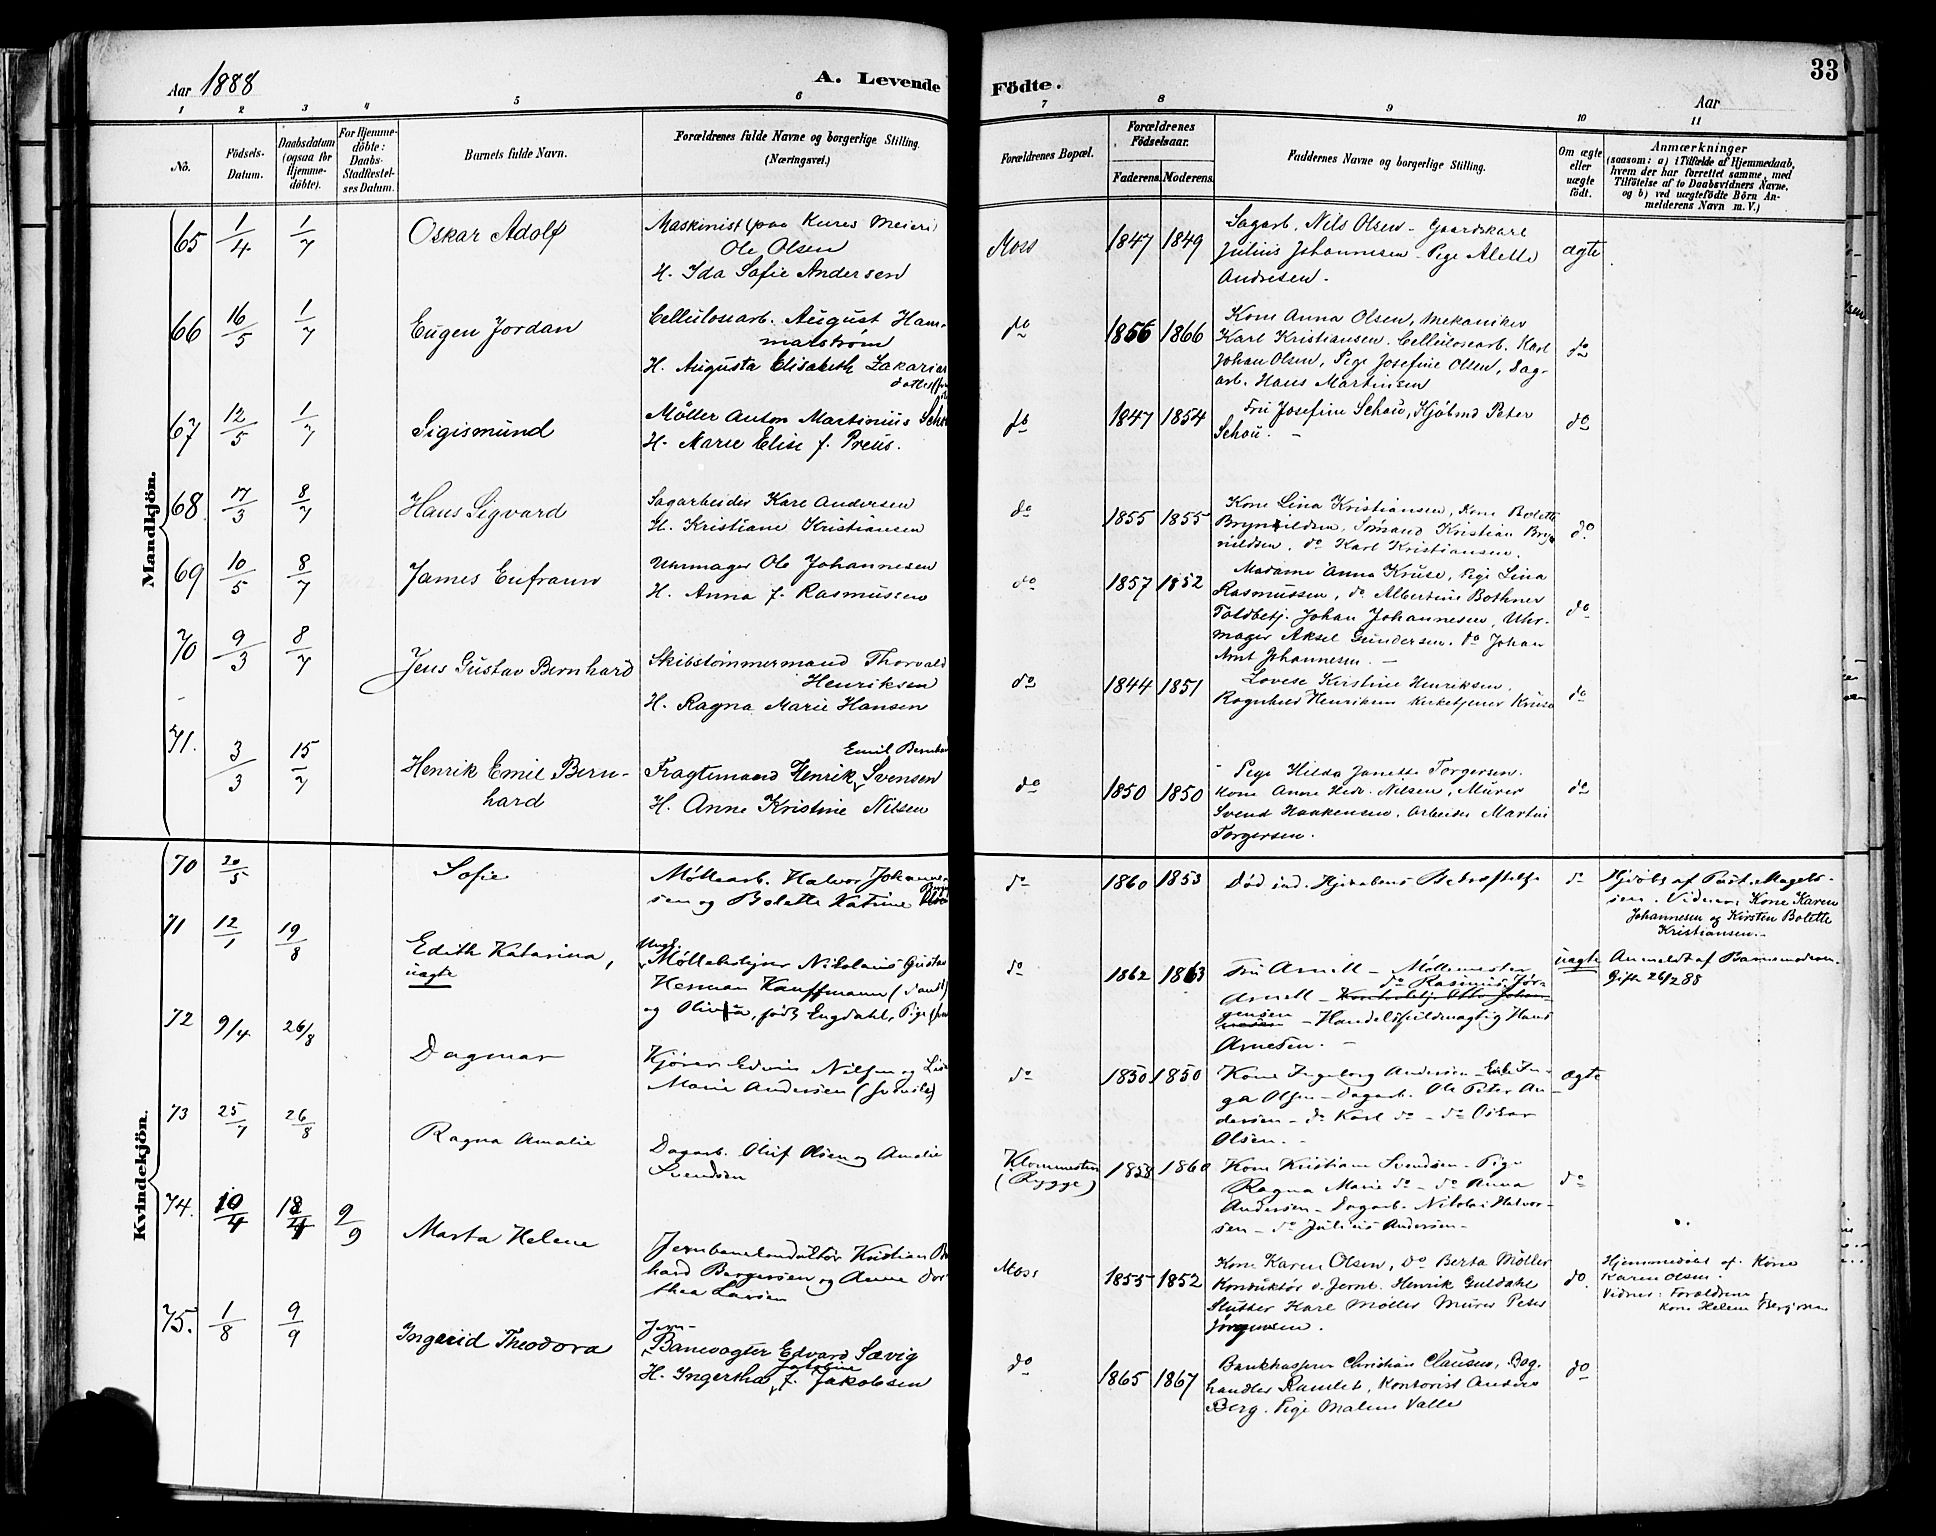 Aar 1888
A. Levende
Födte.
33
Aar
1 2 3 4 5 6 7 8 9 10 11
No.
Födsels-
Datum.
Daabsdatum
(ogsaa for
Hjemme-
döbte).
For Hjemme-
döbte:
Daabs-
Stadfestel-
ses Datum.
Barnets fulde Navn.
Forældrenes fulde Navne og borgerlige Stilling.
(Næringsvei.)
Forældrenes Bopæl.
Forældrenes
Födselsaar.
Faderens. Moderens.
Faddernes Navne og borgerlige Stilling.
Om ægte
eller
uægte
födt.
Anmærkninger
(saasom: a) i Tilfælde af Hjemmedaab,
hvem der har forrettet samme, med
Tilföielse af to Daabsvidners Navne,
og b) ved uægtefödte Börn An-
melderens Navn m. V.)
Mandkjön.
65 1/4 1/7 Oskar Adolf
Maskinist (paa Kures Meieri)
Ole Olsen
H. Ida Sofie Andersen
Moss 1847 1849
Sagarb. Nils Olsen - Gaardskarl
Julius Johannesen - Pige Alette
Andresen.
ægte
66 16/5 1/7 Eugen Jordan
Cellulosearb. August Ham-
marstrøm
H. Augusta Elisabeth Zakarias
do 1856 1866
Kone Anna Olsen, Mekaniker
Karl Kristiansen. Cellulosearb. Karl
Johan Olsen, Pige Josefine Olsen, Sag-
arb. Hans Martinsen
do
67 12/5 1/7 Sigismund
Møller Anton Martinius
H. Marie Elise f. Preus.
do 1847 1854
Fru Josefine Schou, Kjøbmd Peter
Schou. -
do
68 17/3 8/7 Hans Sigvard
Sagarbeider Karl Andersen
H. Kristiane Kristiansen
do 1855 1855
Kone Lina Kristiansen, Kone Bolette
Brynildsen, Sømand Kristian Bry-
nildsen, do Karl Kristiansen.
do
69 10/5 8/7 James
Uhrmager Ole Johannesen
H. Anna f. Rasmussen
do 1857 1852
Madame Anna Kruse, Pige Lina
Rasmussen, do Albertine Bothner
Toldbetj. Johan Johannesen, Uhr-
mager Aksel Gundersen. do Johan
Arnt Johannesen. -
do
70 9/3 8/7 Jens Gustav Bernhard
Skibstømmermand Thorvald
Henriksen
H. Ragna Marie Hansen
do 1844 1851
Lovese Kirstine Henriksen.
Ragnhild Henriksen Kirketjener Kruse
do
71. 3/3 15/7 Henrik Emil Bern-
hard
Emil
Fragtemand Henrik Svensen
H. Anne Kristine Nilsen
do 1850 1850
Pige Hilda Janette Torgersen.
Kone Anne Hedv. Nilsen, Murer
Svend Haakensen, Arbeider Martin
Torgersen.
do
Kvindekjön.
70 20/5 Sofie
Møllearb. Halvor Johanne-
sen og Bolette Katrine
do 1860 1853
Død ind. Hjdaabens Bekræftelse
do
Hjdøbt af Past. Magels-
sen. Vidner, Kone Karen
Johannesen og Kirsten Bolette
Kristiansen. -
71 12/1 19/8 Edith Katarina,
uægte
Ungk.
Møllebestyrer Nikolaus Gustav
Herman Kauffmann
og Olivia, født Engdahl, Pige
do 1862 1863
Fru Arnell - Møllemester
do Rasmus Jør-
Arnell - Kontorbetj. Otto Johan-
gensen
- Handelsfuldmægtig Hans
Arnesen. -
uægte
Anmeldt af Barnemoderen.
Gifte 26/2 88
72 9/4 26/8 Dagmar
Kjører Edvin Nilsen og
Marie Andersen
do 1850 1850
Kone Ingeborg Andersen - In-
ga Olsen - Dagarb. Ole Peter An-
dersen - do Karl do - do Oskar
Olsen. -
ægte
73 25/7 26/8 Ragna Amalie
Dagarb. Oluf Olsen og Amalie
Svendsen
(Rygge) 1858 1860
Kone Kristiane Svendsen - Pige
Ragna Marie do - do Anna
Andersen - Dagarb. Nikolai Halvor-
sen - do Julius Andersen -
do
74. 10/4 18/4 9/9 Marta Helene
Jernbanekonduktør Kristian
hard Bergersen og Anne Dor
thea Larsen
Moss 1855 1852
Kone Karen Olsen, do Berta Møller
Konduktør v. Jernb. Henrik Guldahl
Slutter Karl Møller Murer Peter
Jørgensen.
do.
Hjemmedøbt af Kone
Karen Olsen.
Vidner: Forældrene &
Kone Helene Bergersen
75. 1/8 9/9 Ingerid Theodora
Jern-
Banevogter Edvard Sævig
Jakobine
H. Ingertha f. Jakobsen
do 1865 1867
Bankkasserer Christian Clausen, Bog-
handler Ramlet, Kontorist Anders
Berg. Pige Malene Valle
do